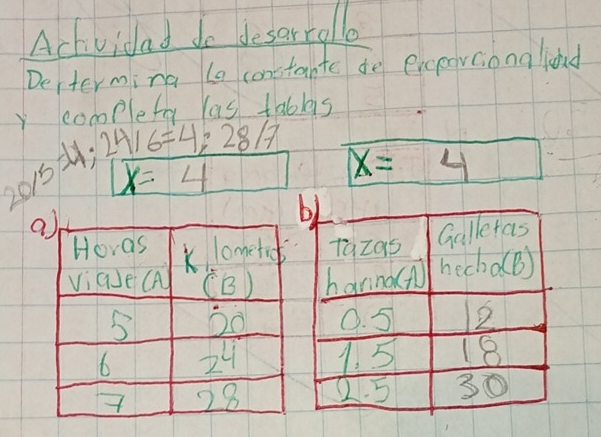 Actividad de desarrollo
Dertermina la constante de
y completa las tablas
20/5=4; 24/6=4; 28/7
X= 4
X= 4
a)
Horas viaje (A) Kilometros (B)
5 20
6 24
7 28
b)
Tazas harina(A) Galletas hecha(B)
0.5 12
1.5 18
2.5 30